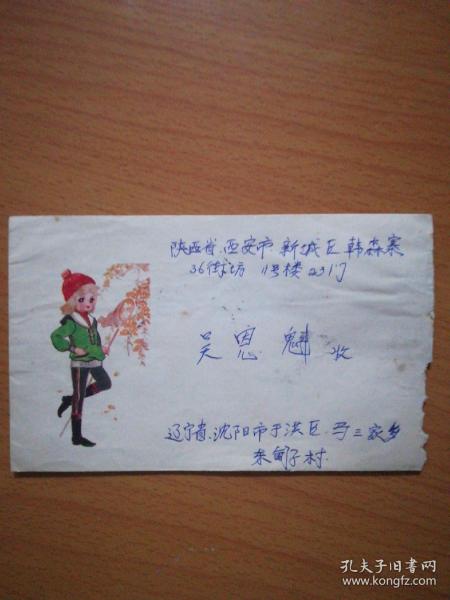 陕西省西安市新城区韩森寨
36街坊 11号楼 23门
吴恩魁 收
辽宁省沈阳市于洪区马三家乡
东甸子村
孔夫子旧书网
www.kongfz.com